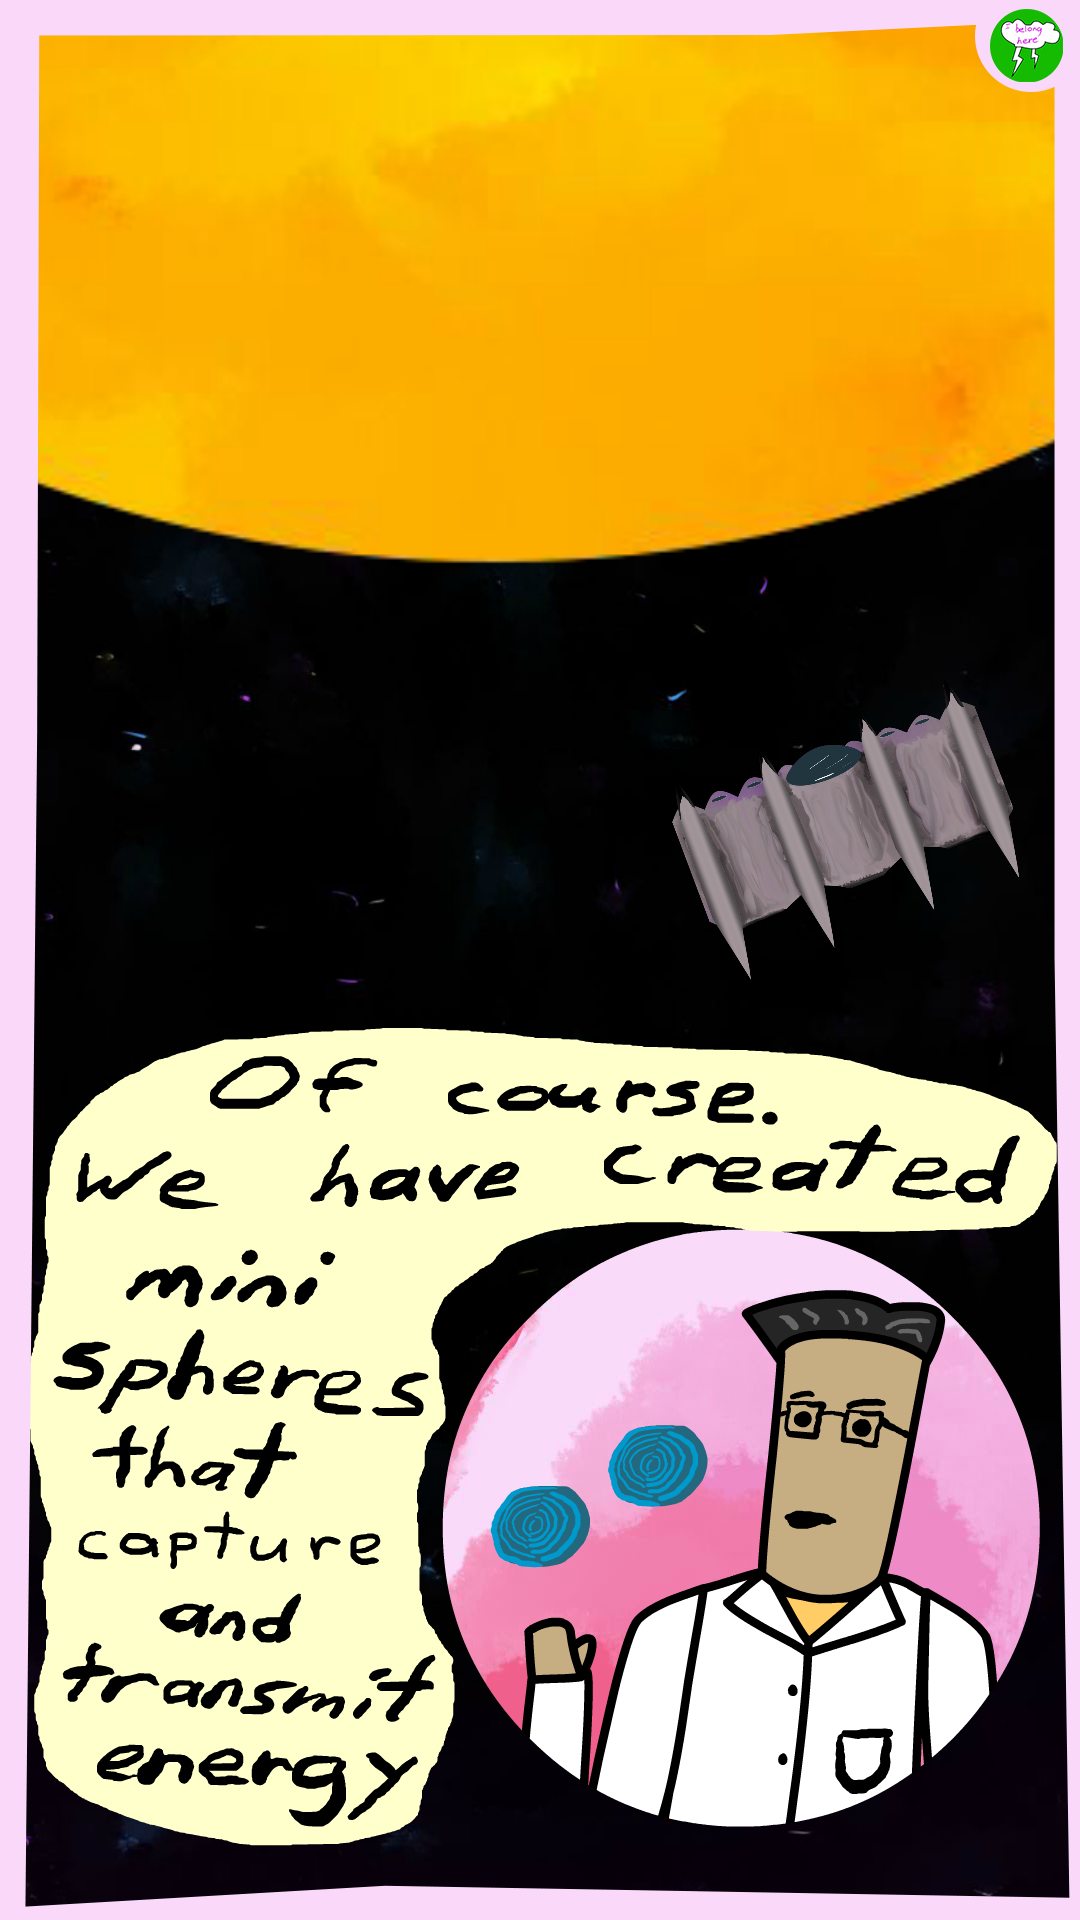 belong
here
Of course.
We have created
mini
spheres
that
capture
and
transmit
energy